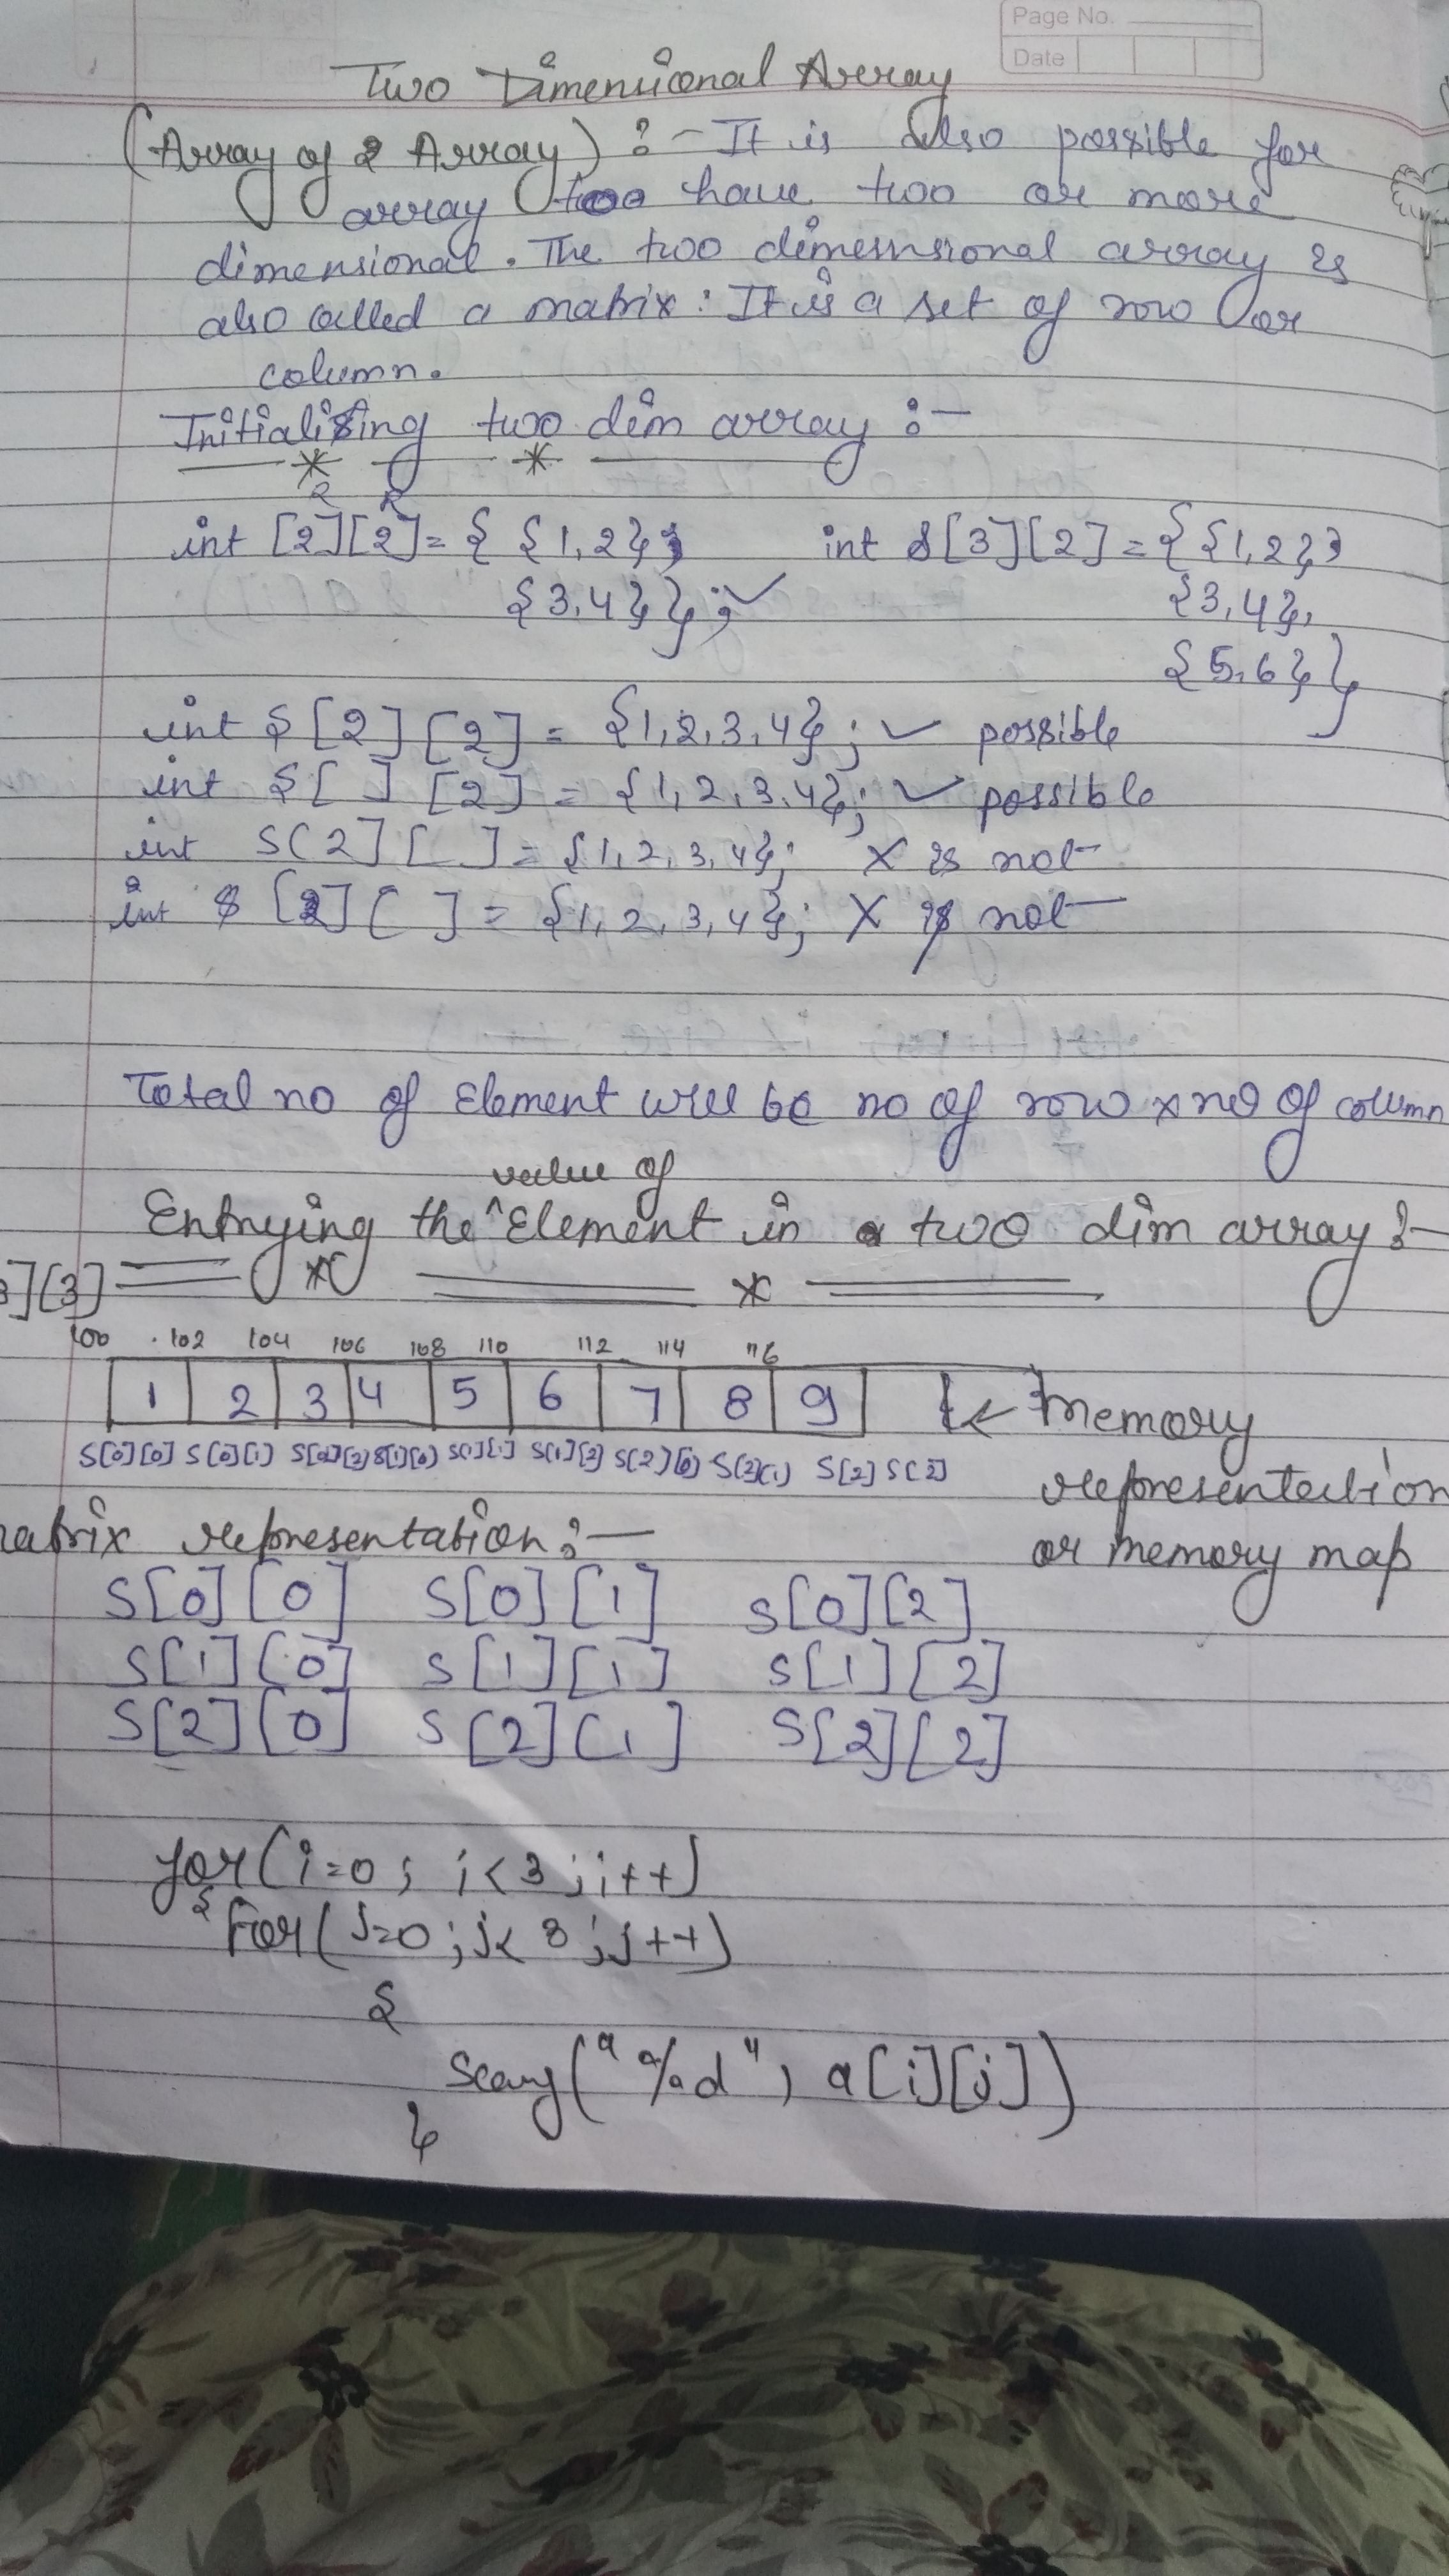 Page No.
Date
Two Dimensional Array
(Array of 2 Array) :- It is also possible for
array too have two or more
dimensional. The two dimensional array is
also called a matrix: It is a set of row or
column.
Initializing two dim array :-
int [2][2] = { {1,2}, int S[3][2] = {{1,2},
{3,4}}; ✓ {3,4},
{5,6}}
int S[2][2] = {1,2,3,4}; ✓ possible
int S[ ][2] = {1,2,3,4}; ✓ possible
int S[2][ ] = {1,2,3,4}; X is not
int S[2][ ] = {1,2,3,4}; X is not
Total no of Element will be no of row x no of column
value of
Entrying the ^ Element in a two dim array :-
][3]
100 102 104 106 108 110 112 114 116
1 2 3 4 5 6 7 8 9 ← Memory
S[0][0] S[0][1] S[0][2] S[1][0] S[1][1] S[1][2] S[2][0] S[2][1] S[2] S[2]
representation
or memory map
atrix representation :-
S[0][0] S[0][1] S[0][2]
S[1][0] S[1][1] S[1][2]
S[2][0] S[2][1] S[2][2]
for(i=0; i<3; i++)
{
For(j=0; j<3; j++)
{
Scanf("%d", a[i][j])
}